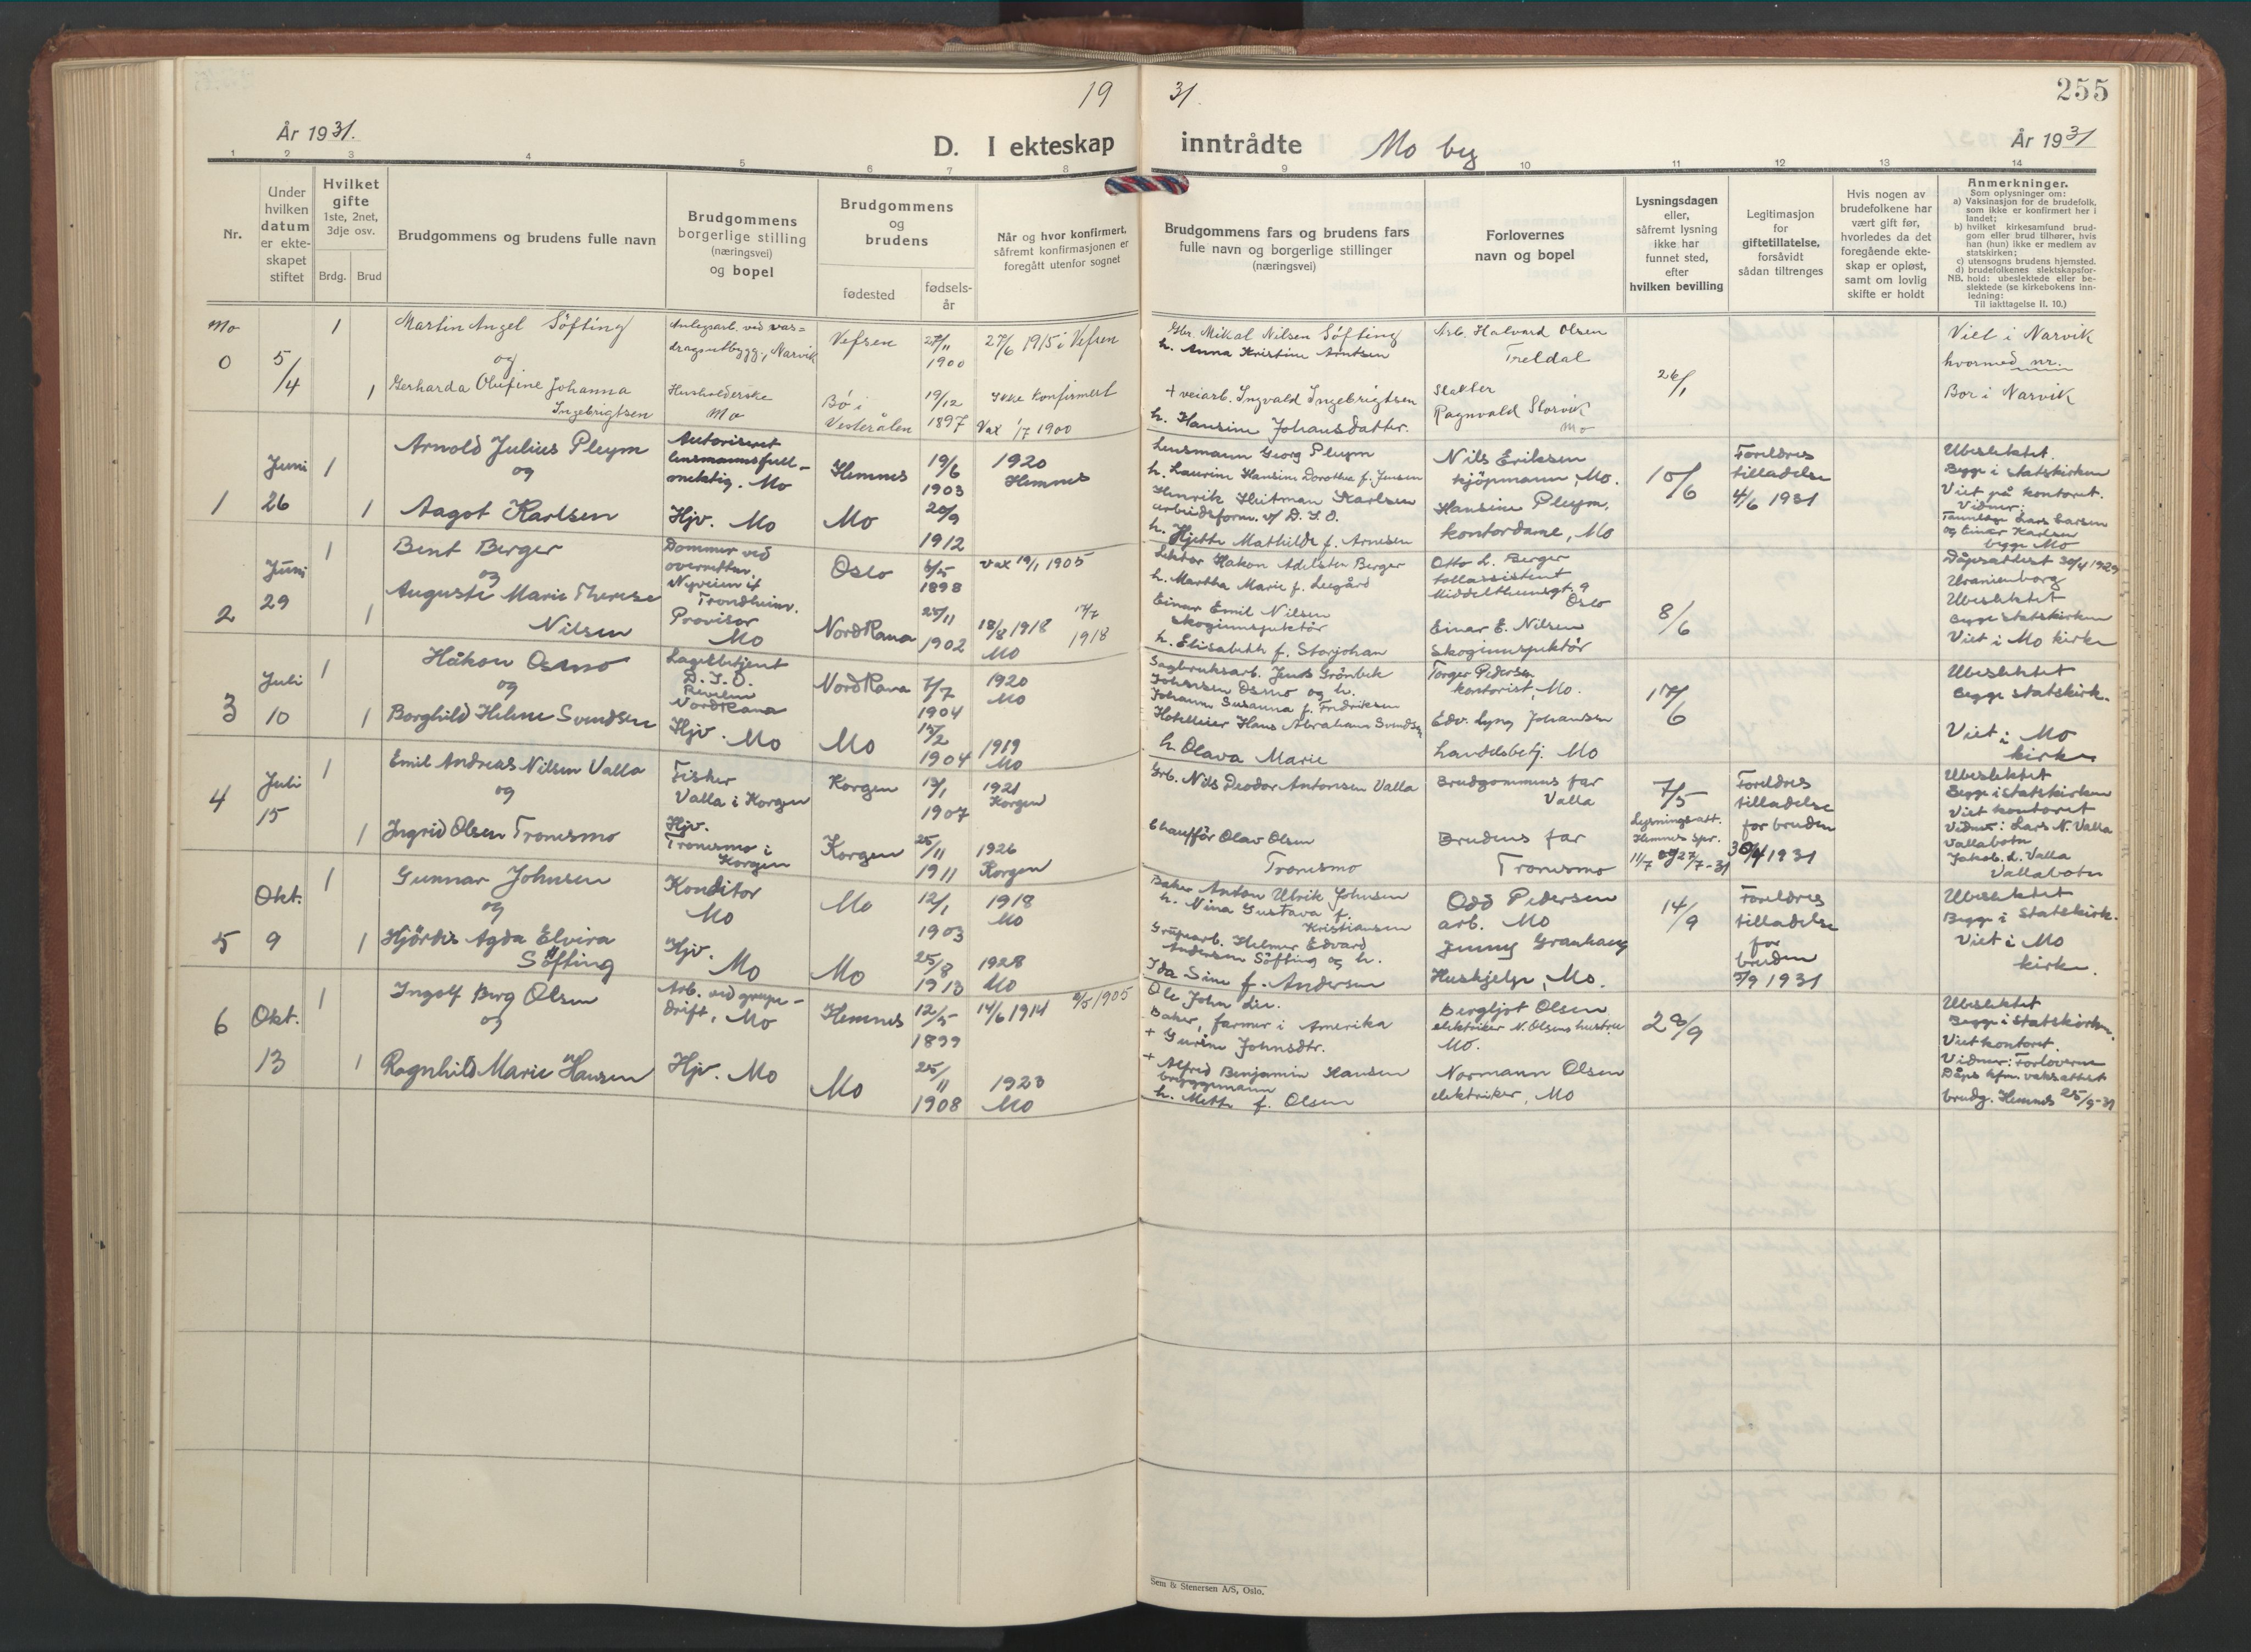 19 31.
255
År 1931.
D. I ekteskap inntrådte
Mo by
År 1931
1 2 3 4 5 6 7 8 9 10 11 12 13 14
Nr.
Under hvilken datum er ekte-skapet stiftet
Hvilket gifte
1ste, 2net, 3dje osv.
Brdg. Brud
Brudgommens og brudens fulle navn
Brudgommens borgerlige stilling (næringsvei) og bopel
Brudgommens og brudens
fødested
fødsels-år
Når og hvor konfirmert, såfremt konfirmasjonen er foregått utenfor sognet
Brudgommens fars og brudens fars fulle navn og borgerlige stillinger (næringsvei)
Forlovernes navn og bopel
Lysningsdagen eller, såfremt lysning ikke har funnet sted, efter hvilken bevilling
Legitimasjon for giftetillatelse, forsåvidt sådan tiltrenges
Hvis nogen av brudefolkene har vært gift før, hvorledes da det foregående ekte-skap er opløst, samt om lovlig skifte er holdt
Anmerkninger.
Som oplysninger om:
a) Vaksinasjon for de brudefolk, som ikke er konfirmert her i landet;
b) hvilket kirkesamfund brud-gom eller brud tilhører, hvis han (hun) ikke er medlem av statskirken;
c) utensogns brudens hjemsted.
d) brudefolkenes slektskapsfor-hold: ubeslektede eller be-slektede (se kirkebokens inn-ledning:
NB. Til iakttagelse II. 10.)
Mo
0
5/4
1
Martin Angel Söfting
og
Anlegsarb. ved vas=
dragsutbygg., Narvik
Vefsen
27/11
1900
27/6 1915 i Vefsen
Gbr. Mikal Nilsen Söfting
h. Anna Kristine Arntsen
Arb. Halvard Olsen
Treldal
26/1
Viet i Narvik
hvormed nr.
Bor i Narvik
1
Gerharda Olufine Johanna
Ingebrigtsen
Husholderske
Mo
Bö i
Vesterålen
19/12
1897
Ikke konfirmert
Vax 1/7 1900
+ veiarb. Ingvald Ingebrigtsen
h. Hansine Johansdatter.
Slakter
Ragnvald Storvik
Mo
1
Juni
26
1
Arnold Julius Pleym
og
Autoriseret
lensmannsfull-
mektig. Mo
Hemnes
19/6
1903
1920
Hemnes
Lensmann Georg Pleym
h. Laurine Hansine Dorothea f. Jensen
Nils Eriksen
kjöpmann, Mo.
10/6
Foreldres
tilladelse
4/6 1931
Ubeslektet.
Begge i statskirken
Viet på kontoret.
Vidner:
Tannlæge Lars Larsen
og Einar Karlsen
begge Mo
1
Aagot Karlsen
Hjv. Mo
Mo
20/9
1912
Henrik Heitman Karlsen
arbeidsform. v/ D.I.O.
h. Hjette Mathilde f. Arnesen
Hansine Pleym,
kontordame, Mo
2
Juni
29
1
Bent Berger
og
Dommer ved
overretten,
Nyveien 18
Trondheim.
Oslo
6/5
1898
Vax 19/1 1905
Lektor Hakon Adelsten Berger
h. Martha Marie f. Leegård
Otto L. Berger
tollassistent
Middelthunsgt. 9
Oslo
8/6
Dåpsattest 30/4 1929
Uranienborg
Ubeslektet
Begge statskirken
Viet i Mo kirke
1
Auguste Marie Therese
Nilsen
Provisor
Mo
NordRana
25/11
1902
18/8 1918
Mo
1918
Einar Emil Nilsen
skoginnspektör
h. Elisabeth f. Storjohan
Einar E. Nilsen
Skoginnspektör
3
Juli
10
1
Håkon Osmo
og
Lagerbetjent
D.I.O.
NordRana
NordRana
7/7
1904
1920
Mo
Sagbruksarb. Jens Grönbek
Johansen Osmo og h.
Johanna Susanna f. Fredriksen
Torger Pedersen
kontorist, Mo.
17/6
Ubeslektet
Begge statskirk.
Viet i Mo
kirke
1
Borghild Helene Svendsen
Hjv. Mo
Mo
15/2
1904
1919
Mo
Hotelleier Hans Abraham Svendsen
h. Olava Marie
Edv. Lyng Johansen
handelsbetj. Mo
4
Juli
15
1
Emil Andreas Nilsen Valla
og
Fisker
Valla i Korgen
Korgen
13/1
1907
1921
Korgen
Grb. Nils Peodor Antonsen Valla
Brudgommens far
Valla
7/5
Lysningsatt.
Hemnes spr.
11/7 og 27/7-31
Foreldres
tilladelse
for bruden
30/4 1931
Ubeslektet
Begge i statskirken
Viet kontoret
Vidner: Lars N. Valla
Vallabotn
Jakob L. Valla
Vallabotn
1
Ingrid Olsen Tronesmo
Hjv.
Tronesmo i
Korgen
Korgen
25/11
1911
1926
Korgen
Chaufför Olav Olsen
Tronesmo
Brudens far
Tronesmo
5
Okt.
9
1
Gunnar Johnsen
og
Konditor
Mo
Mo
12/1
1903
1918
Mo
Baker Anton Ulrik Johnsen
h. Nina Gustava f.
Kristiansen
Odd Pedersen
arb. Mo
14/9
Foreldres
tilladelse
for
bruden
3/9 1931
Ubeslektet
Begge i Statskirk.
Viet i Mo
kirke.
1
Hjördis Agda Elvira
Söfting
Hjv.
Mo
Mo
25/8
1913
1928
Mo
Grubearb. Helmer Edvard
Andersen Söfting og h.
Ida Sine f. Andersen
Jenny Granhaug
Hushjelp, Mo.
6
Okt.
13
1
Ingolf Berg Olsen
og
Arb. ved grupe-
drift, Mo
Hemnes
12/5
1899
14/6 1914
1905
Ole John Lie.
Baker, farmer i Amerika
+ Gurine Johnsdtr.
Bergljot Olsen
elektriker N. Olsens hustru
Mo.
28/9
Ubeslektet
Begge i statskirken
Viet kontoret.
Vidner: Forloverne
Dåps kfm. vaksattest
brudg. Hemnes 25/9-31
1
Ragnhild Marie Hansen
Hjv. Mo
Mo
25/11
1908
1923
Mo
+ Alfred Benjamin Hansen
bryggemann
h. Mette f. Olsen
Normann Olsen
elektriker, Mo
Sem & Stenersen A/S, Oslo.